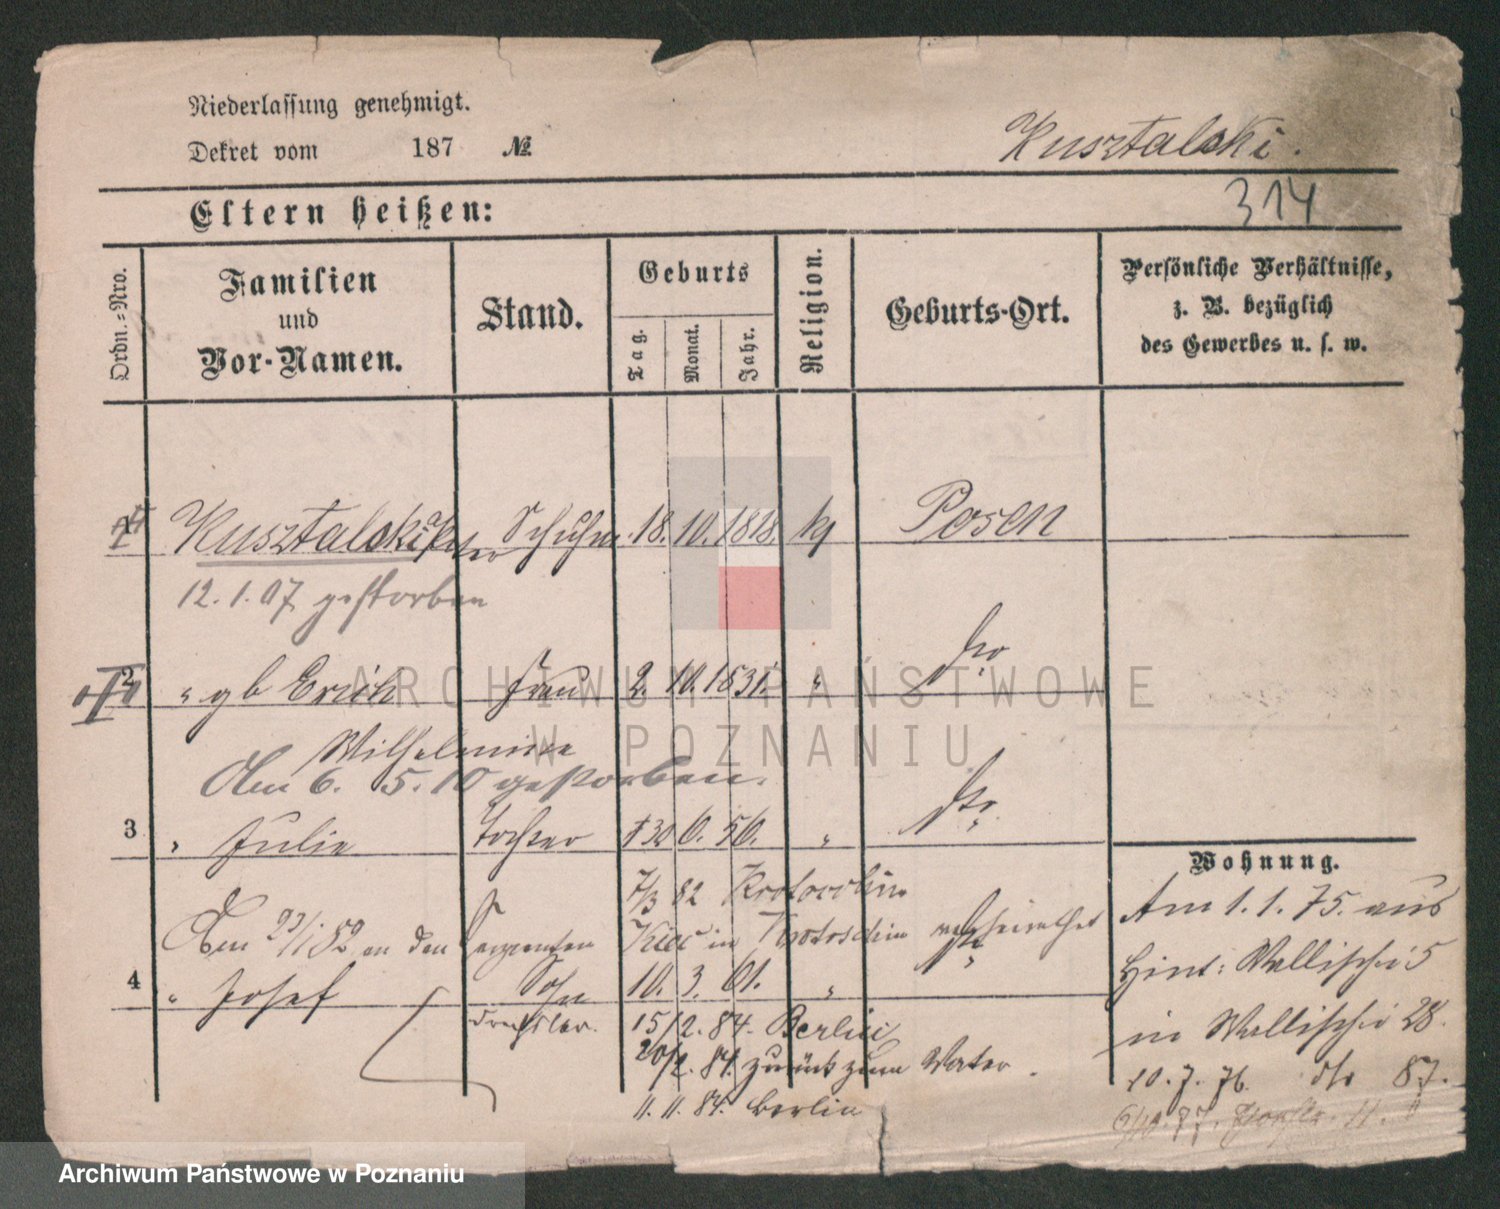 Niederlassung genehmigt.
Dekret vom 187 №
Kusztalski.
314
Eltern heißen:
Ordn.=Nro.
Familien
und
Vor-Namen.
Stand.
Geburts
Tag.
Monat.
Jahr.
Religion.
Geburts-Ort.
Persönliche Verhältnisse,
z. B. bezüglich
des Gewerbes u. s. w.
Kusztalski Schuhm. 18. 10. 1818. kj Posen
12. 1. 07 gestorben
2 " gb Erich Frau 2. 10. 1831. " dto
Wilhelmine
Am 6. 5. 10 gestorben.
3 " Julie Tochter 30 6. 56. " dto
Wohnung.
7/3 82 Krotoschin
Am 1. 1. 75. aus
Am 23/1 82 an den Sergenten in Krotoschin verheirathet
Hint: Wallischei 5
4 " Josef Sohn 10. 3. 61. " dto
Drechsler. 15/2. 84. Berlin
in Wallischei 28.
20/2. 84. zurück zum Vater.
10. 7. 76. dto 87.
11. 11. 84. Berlin
ARCHIWUM PAŃSTWOWE
W POZNANIU
Archiwum Państwowe w Poznaniu